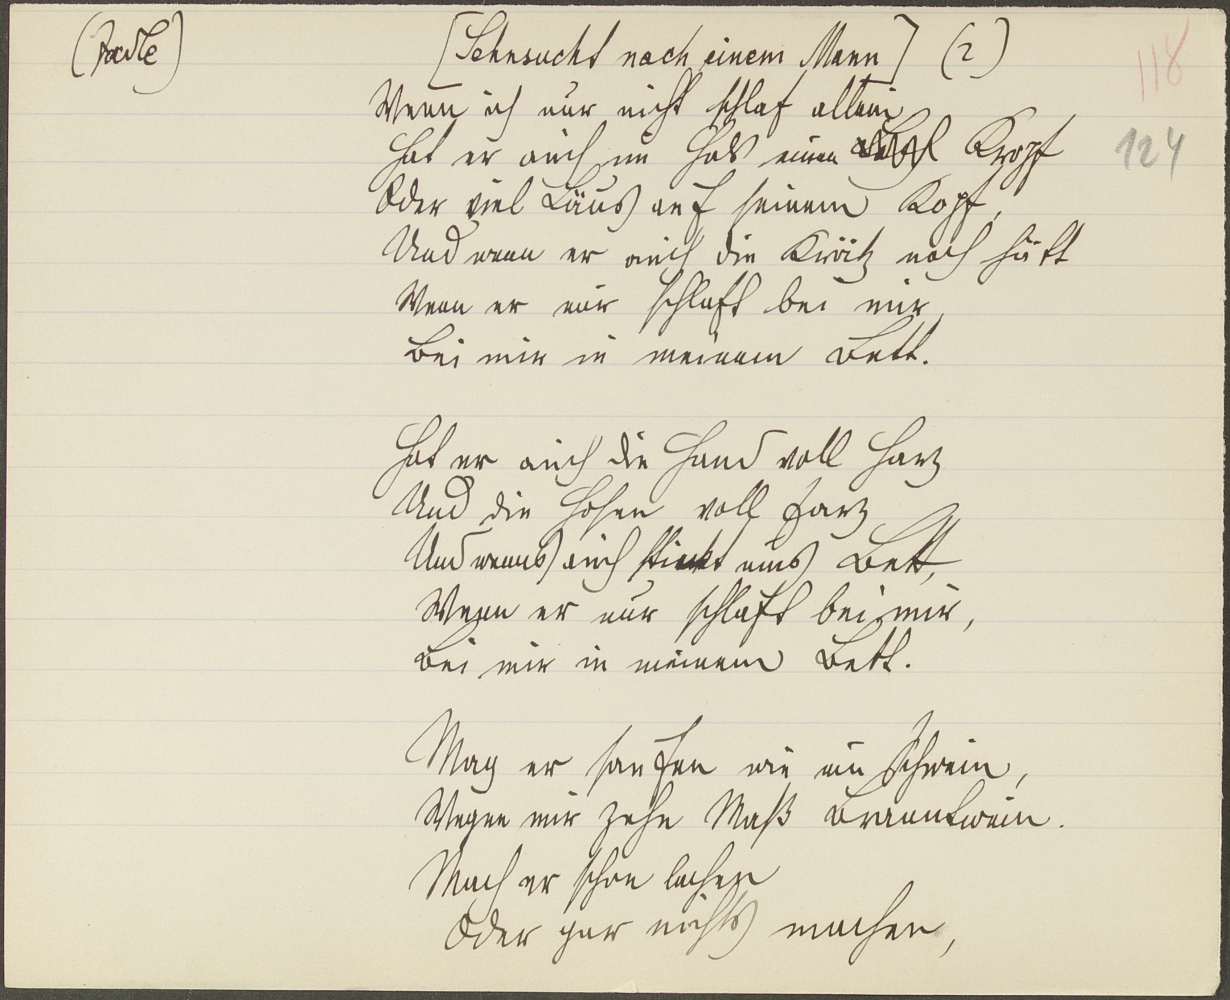 [Sehnsucht nach einem Mann] (2)
118
Wenn ich nur nicht schlaf allein
124
Hat er auch im Hals einen Kropf
Oder viel Läus auf seinem Kopf,
Und wenn er auch die Krätz noch hätt
Wenn er nur schlaft bei mir,
Bei mir in meinem Bett.
Hat er auch die Hand voll Harz
Und die Hosen voll Farz
Und wenns auch stinkt ums Bett,
Wenn er nur schlaft bei mir,
Bei mir in meinem Bett.
Mag er saufen wie ein Schwein,
Wegen mir zehn Maß Branntwein.
Mach er schon lachen
Oder gar nichts machen,